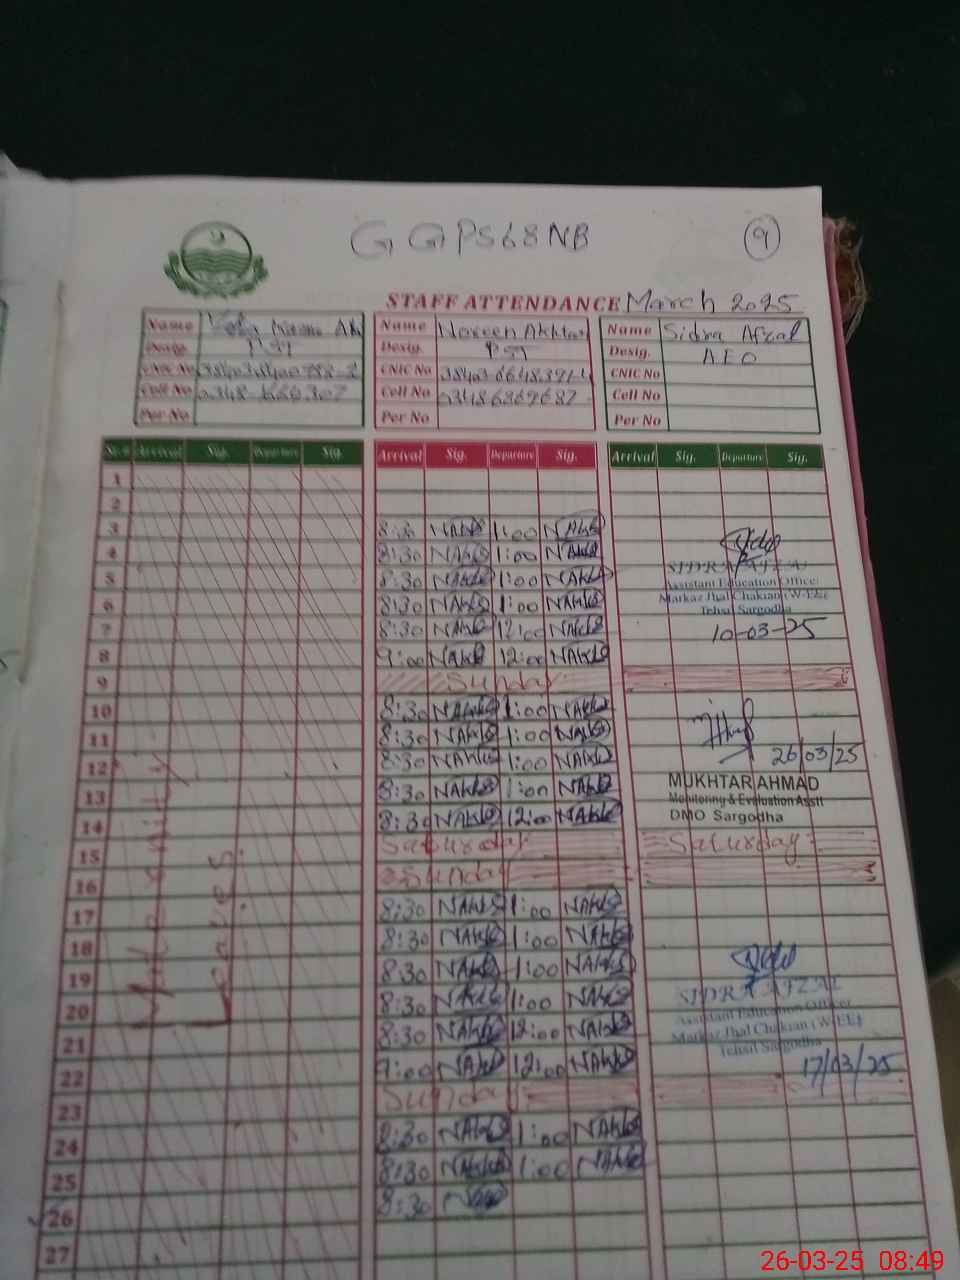 G GPS 68 NB
9
STAFF ATTENDANCE March 2025
Name
Desig. PST
CNIC No
Cell No
Per No
Name Noreen Akhtar
Desig. PST
CNIC No
Cell No 03486869682
Per No
Name Sidra Afzal
Desig. AEO
CNIC No
Cell No
Per No
Sr.# Arrival Sig. Departure Sig. Arrival Sig. Departure Sig. Arrival Sig. Departure Sig.
1
2
3 8:30 NAkh 1:00 NAkh
4 8:30 NAkh 1:00 NAkh
5 8:30 NAkh 1:00 NAkh
6 8:30 NAkh 1:00 NAkh
7 8:30 NAkh 12:00 NAkh
8 9:00 NAkh 12:00 NAkh
9 Sunday
10 8:30 NAkh 1:00 NAkh
11 8:30 NAkh 1:00 NAkh
12 8:30 NAkh 1:00 NAkh
13 8:30 NAkh 1:00 NAkh
14 8:30 NAkh 12:00 NAkh
15 Saturday Saturday
16 Sunday
17 8:30 NAkh 1:00 NAkh
18 8:30 NAkh 1:00 NAkh
19 8:30 NAkh 1:00 NAkh
20 8:30 NAkh 1:00 NAkh
21 8:30 NAkh 12:00 NAkh
22 9:00 NAkh 12:00 NAkh
23 Sunday
24 8:30 NAkh 1:00 NAkh
25 8:30 NAkh 1:00 NAkh
26 8:30
27
Leaves
SIDRA AFZAL
Assistant Education Officer
Markaz Jhal Chakian (W-EE)
Tehsil Sargodha
10-03-25
26/03/25
MUKHTAR AHMAD
Monitoring & Evaluation Asstt
DMO Sargodha
SIDRA AFZAL
Assistant Education Officer
Markaz Jhal Chakian (W-EE)
Tehsil Sargodha
17/03/25
26-03-25 08:49